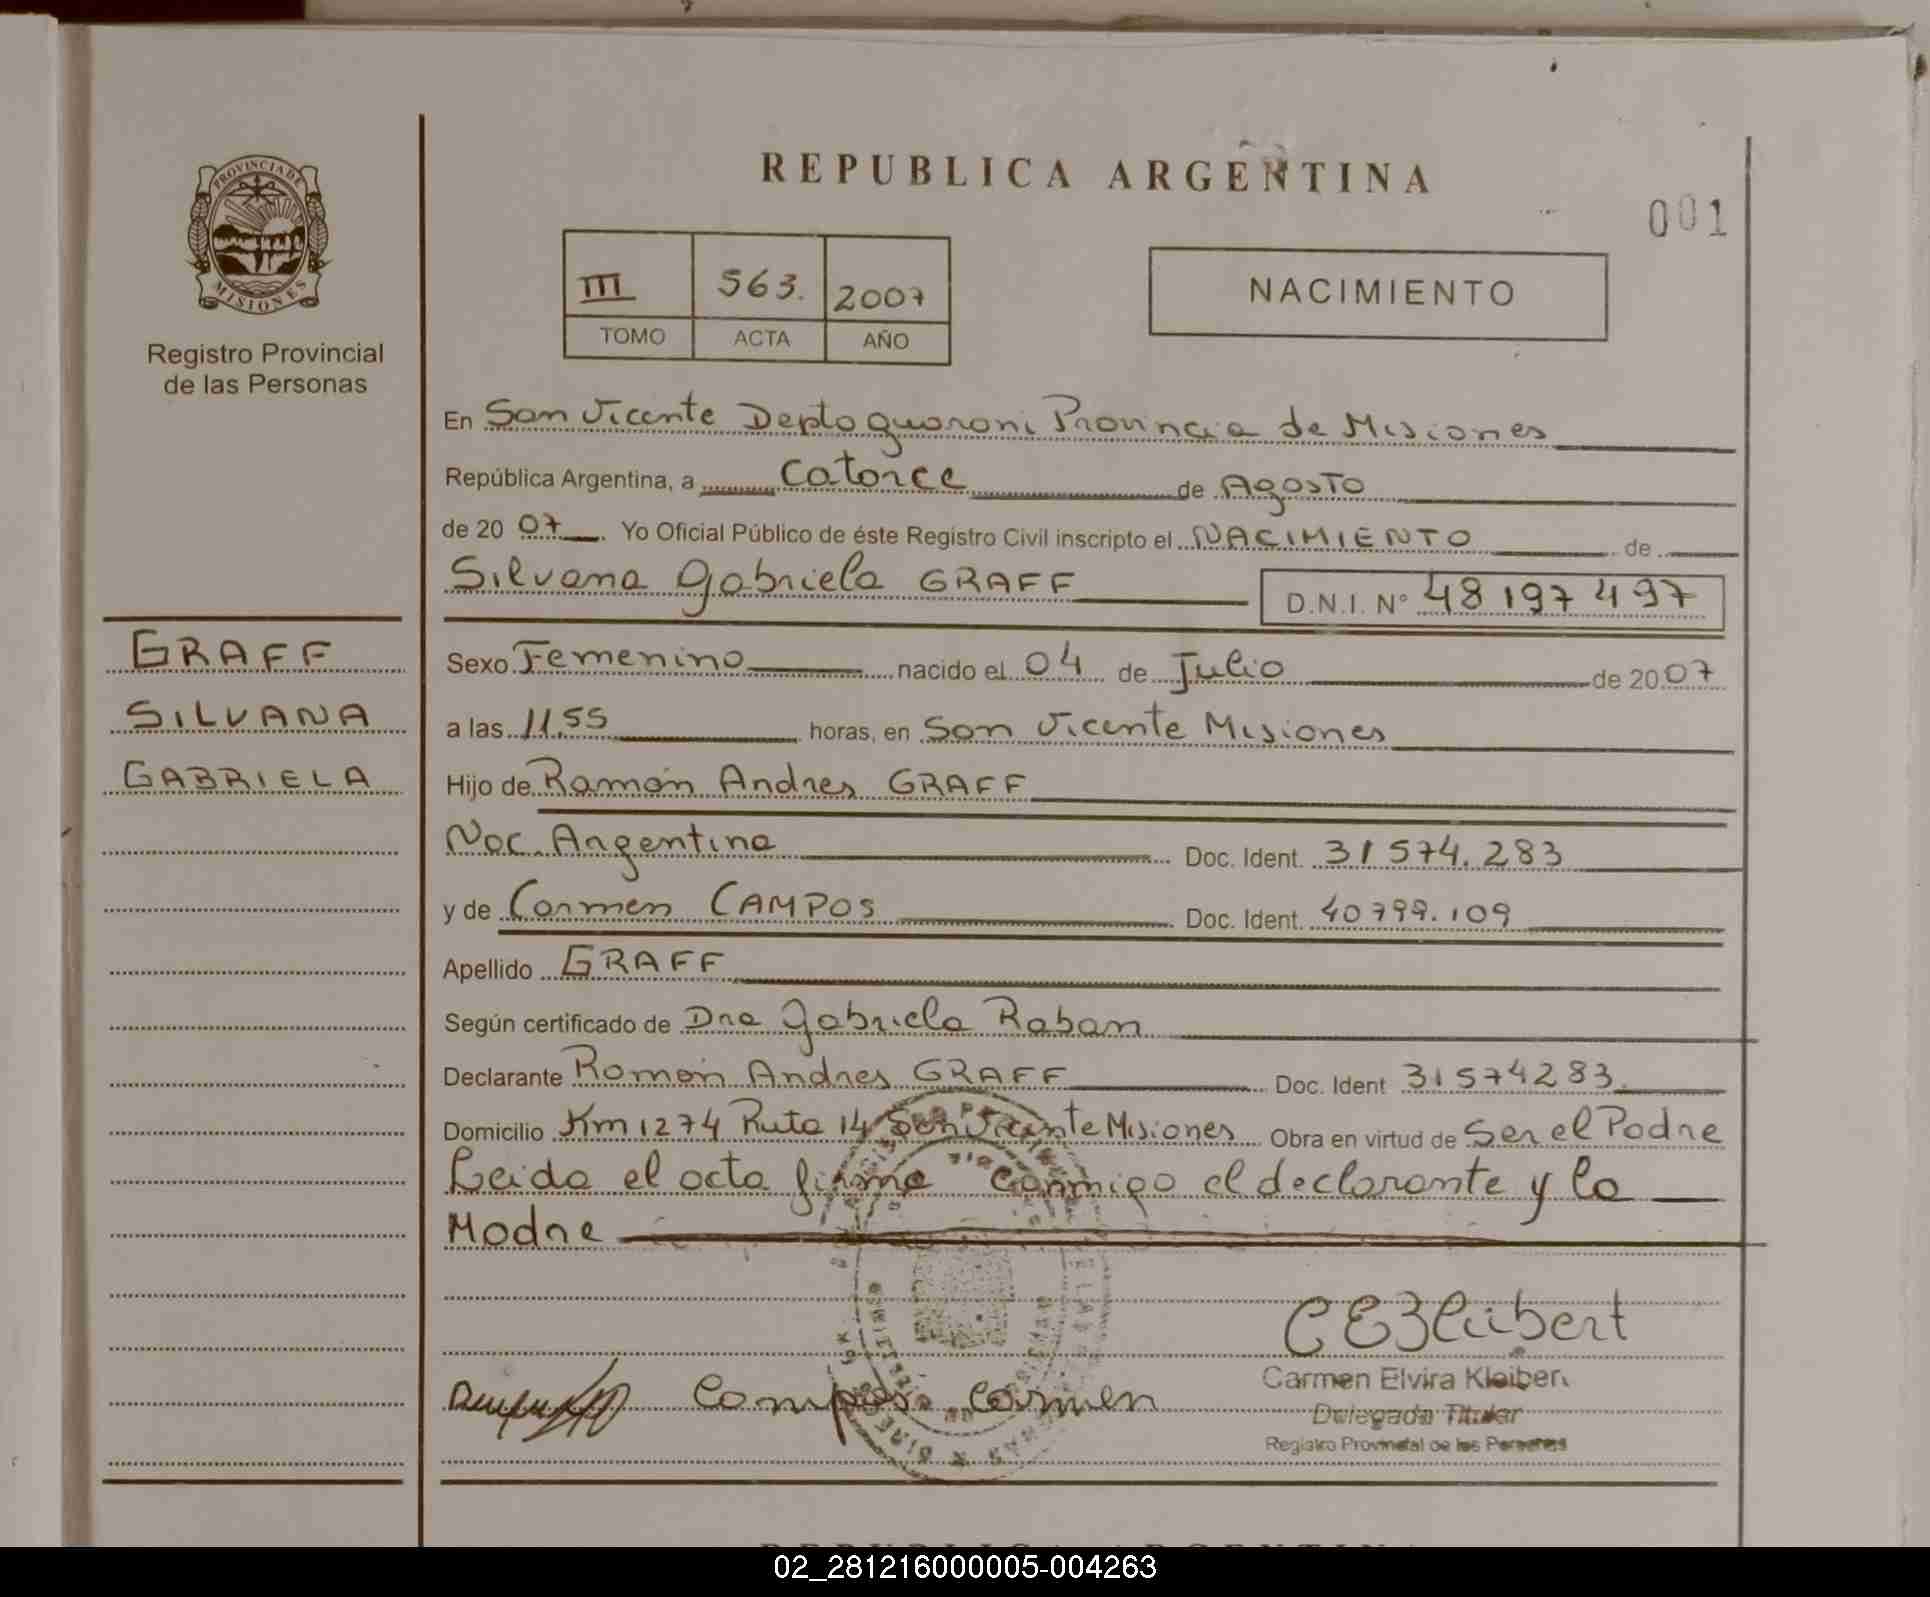 PROVINCIA DE
MISIONES
Registro Provincial
de las Personas
GRAFF
SILVANA
GABRIELA
REPUBLICA ARGENTINA
001
III 563. 2007
TOMO ACTA AÑO
NACIMIENTO
En San Vicente Depto guarani Provincia de Misiones
República Argentina, a Catorce de Agosto
de 20 07. Yo Oficial Público de éste Registro Civil inscripto el NACIMIENTO de
Silvana Gabriela GRAFF D.N.I. Nº 48197497
Sexo Femenino nacido el 04 de Julio de 2007
a las 11.55 horas, en San Vicente Misiones
Hijo de Ramón Andres GRAFF
Nac. Argentina Doc. Ident. 31574.283
y de Carmen CAMPOS Doc. Ident. 40799.109
Apellido GRAFF
Según certificado de Dra Gabriela Raban
Declarante Ramón Andres GRAFF Doc. Ident 31574283.
Domicilio Km 1274 Ruta 14 San Vicente Misiones Obra en virtud de Ser el Padre
Leida el acta firma conmigo el declarante y la
Madre
Campos Carmen
Carmen Elvira Kleiber
Delegada Titular
Registro Provincial de las Personas
REPUBLICA ARGENTINA
02_281216000005-004263